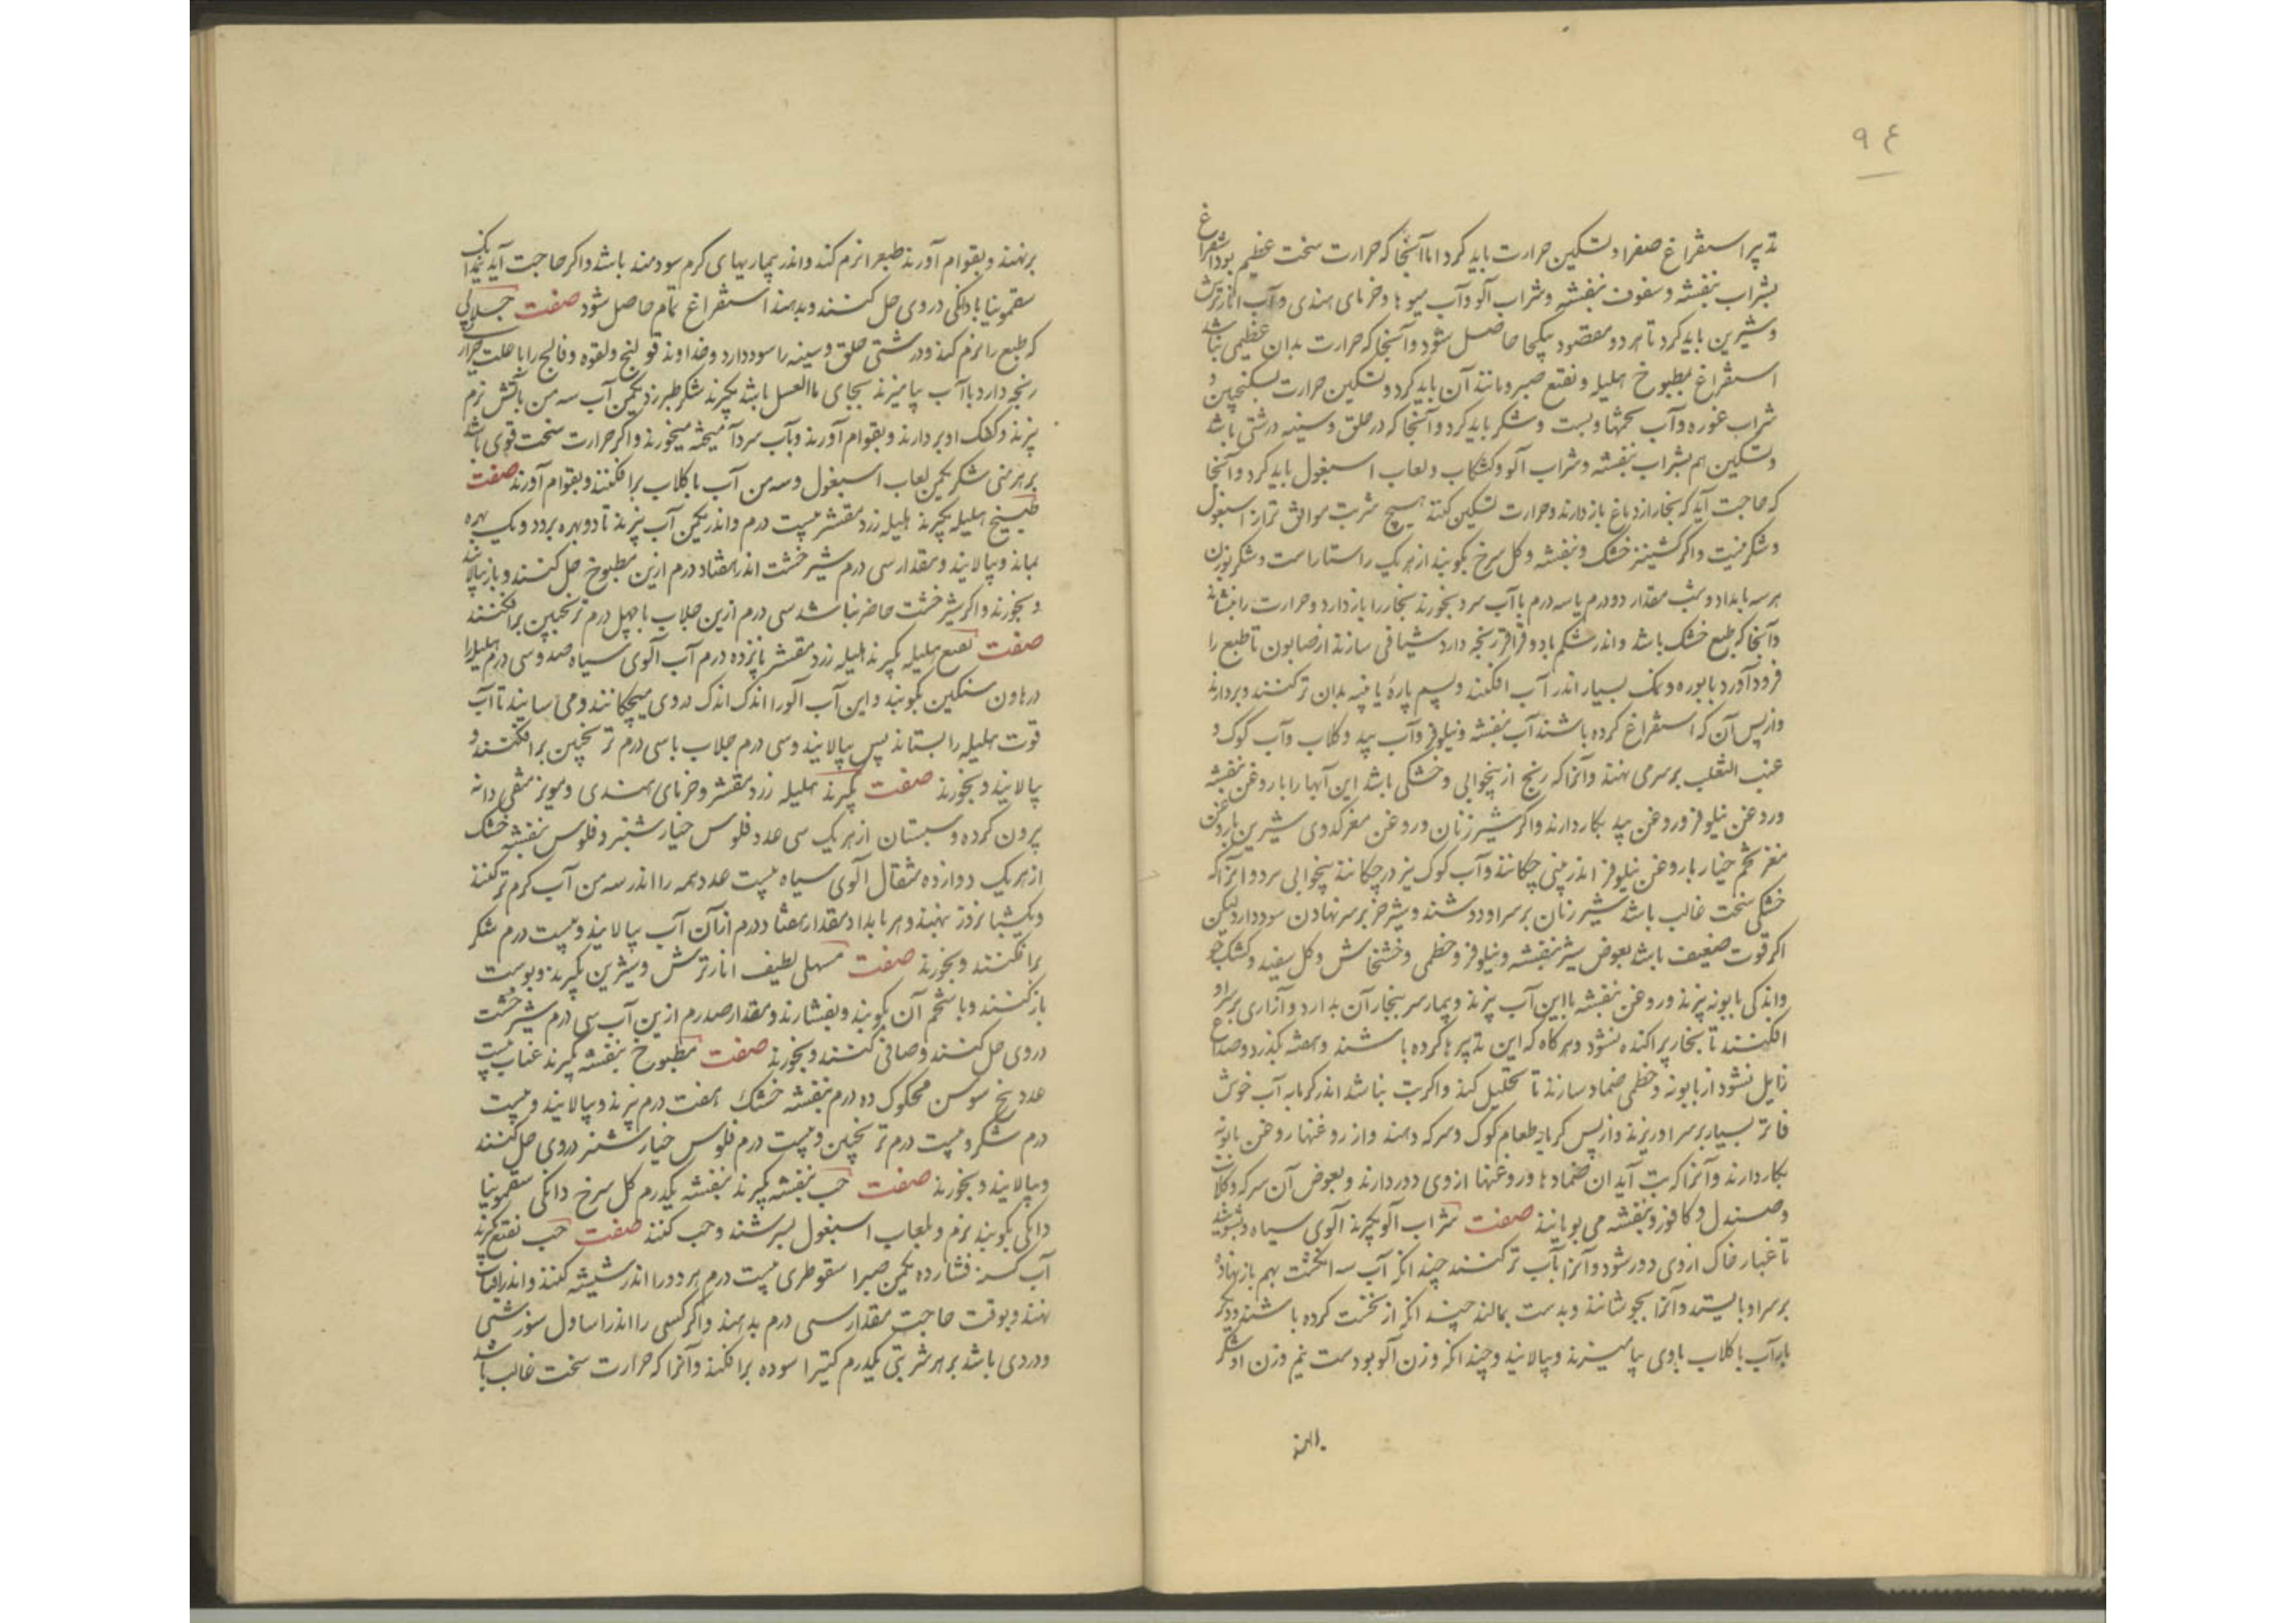 ٩٤
تدبیر استفراغ صفرا و تسکین حرارت باید کرد اما آنجا که حرارت سخت عظیم بود استفراغ
بشراب بنفشه و سفوف بنفشه و شراب آلو و آب میوها و خرمای هندی و آب انار ترش
و شیرین باید کرد تا هر دو مقصود یکجا حاصل شود و آنجا که حرارت بدان عظیمی نباشد
استفراغ بمطبوخ هلیله و نقیع صبر و مانند آن باید کرد و تسکین حرارت بسکنجبین و
شراب غوره و آب تخمها و بست و شکر باید کرد و آنجا که در حلق و سینه درشتی باشد
و تسکین هم بشراب بنفشه و شراب آلو و کشکاب و لعاب اسبغول باید کرد و آنجا
که حاجت آید که بخار از دماغ باز دارند و حرارت تسکین کنند هیچ شربت موافق تر از اسبغول
و شکر نیست و اگر کشنیز خشک و بنفشه و کل سرخ بکوبند از هر یک راستا راست و شکر بوزن
هر سه بامداد و شب مقدار دو درم یا سه درم با آب سرد بخورند بخار را باز دارد و حرارت را بنشاند
و آنجا که طبع خشک باشد و اندر شکم باد و قراقر رنجه دارد شیافی سازند از صابون تا طبع را
فرود آورد با بوره و نمک بسیار اندر آب افکنند و پشم پارهٔ یا پنبه بدان تر کنند و بردارند
و از پس آن که استفراغ کرده باشند آب بنفشه و نیلوفر و آب بید و کلاب و آب کوک و
عنب الثعلب بر سر می نهند و آنرا که رنج از بیخوابی و خشکی باشد این آبها را با روغن بنفشه
و روغن نیلوفر و روغن بید بکار دارند و اگر شیر زنان و روغن مغز کدوی شیرین با روغن
مغز تخم خیار با روغن نیلوفر اندر بینی چکانند و آب کوک نیز در چکانند بیخوابی ببرد و آنرا که
خشکی سخت غالب باشد شیر زنان بر سر او دوشند و شیر خر بر سر نهادن سود دارد لیکن
اگر قوت ضعیف باشد بعوض شیر بنفشه و نیلوفر و خطمی و خشخاش و کل سفید و کشک جو
و اندکی بابونه بپزند و روغن بنفشه با این آب بپزند و بیمار سر ببخار آن بدارد و آزاری بر سر او
افکنند تا بخار پراکنده نشود و هر گاه که این تدبیرها کرده باشند و هفته بگذرد و صداع
زایل نشود از بابونه و خطمی ضماد سازند تا تحلیل کند و اگر تب نباشد اندر کرمابه آب خوش
فاتر بسیار بر سر او ریزند و از پس کرمابه طعام کوک و سرکه دهند و از روغنها روغن بابونه
بکار دارند و آنرا که تب آید ان ضمادها و روغنها از وی دور دارند و بعوض آن سرکه و کلاب
و صندل و کافور و بنفشه می بویانند صفت شراب آلو بکیرند آلوی سیاه و بشویند
تا غبار خاک از وی دور شود و آنرا بآب تر کنند چندانکه آب سه انکشت بهم باز نهاده
بر سر او بایستد و آنرا بجوشانند و بدست بمالند چندانکه از نخست کرده باشند و دیکر
بار آب با کلاب با وی بیامیزند و بپالایند و چندانکه وزن آلو بودست نیم وزن او شکر
برنهند و بقوام آورند طبع را نرم کند و اندر بیماریهای کرم سودمند باشد و اگر حاجت آید
سقمونیا با دانکی در وی حل کنند و بدهند استفراغ تمام حاصل شود صفت جلابی
که طبع را نرم کند و درشتی حلق و سینه را سود دارد و خداوند قولنج و لقوه و فالج را با علت
رنجه دارد با آب بیامیزند بجای ماالعسل باشد بکیرند شکر طبرزد یکمن آب سه من بآتش نرم
بپزند و کفک او بردارند و بقوام آورند و بآب سرد آمیخته میخورند و اگر حرارت سخت قوی باشد
بر هر منی شکر یکمن لعاب اسبغول و سه من آب با کلاب برافکنند و بقوام آورند صفت
طبیخ هلیله بکیرند هلیله زرد مقشر بیست درم و اندر یکمن آب بپزند تا دو بهره برود و یک بهره
بماند و بپالایند و مقدار سی درم شیرخشت اندر هفتاد درم ازین مطبوخ حل کنند و باز بپالایند
و بخورند و اگر شیرخشت حاضر نباشد سی درم ازین جلاب با چهل درم ترنجبین برافکنند
صفت نقیع هلیله بکیرند هلیله زرد مقشر پانزده درم آب آلوی سیاه صد و سی درم هلیله را
در هاون سنکین بکوبند و این آب آلو را اندک اندک در وی میچکانند و می سایند تا آب
قوت هلیله را بستاند پس بپالایند و سی درم جلاب با سی درم ترنجبین برافکنند و
بپالایند و بخورند صفت بکیرند هلیله زرد مقشر و خرمای هندی و مویز منقی دانه
بیرون کرده و سبستان از هر یک سی عدد فلوس خیارشنبر و فلوس بنفشه خشک
از هر یک دوازده مثقال آلوی سیاه بیست عدد همه را اندر سه من آب کرم تر کنند
و یک شبانروز بنهند و هر بامداد مقدار هفتاد درم از آن آب بپالایند و بیست درم شکر
برافکنند و بخورند صفت مسهلی لطیف انار ترش و شیرین بکیرند و پوست
باز کنند و با شحم آن بکوبند و بفشارند و مقدار صد درم ازین آب سی درم شیرخشت
در وی حل کنند و صافی کنند و بخورند صفت مطبوخ بنفشه بکیرند عناب بیست
عدد بیخ سوسن محکوک ده درم بنفشه خشک هفت درم بپزند و بپالایند و بیست
درم شکر و بیست درم ترنجبین و بیست درم فلوس خیارشنبر در وی حل کنند
و بپالایند و بخورند صفت حب بنفشه بکیرند بنفشه یکدرم کل سرخ دانکی سقمونیا
دانکی بکوبند نرم و بلعاب اسبغول بسرشند و حب کنند صفت حب نقیع بکیرند
آب فشارده یکمن صبر اسقوطری بیست درم هر دو را اندر شیشه کنند و اندر آفتاب
نهند و بوقت حاجت مقدار سی درم بدهند و اگر کسی را اندر اسافل سوزشی
و دردی باشد بر هر شربتی یکدرم کتیرا سوده برافکنند و آنرا که حرارت سخت غالب باشد